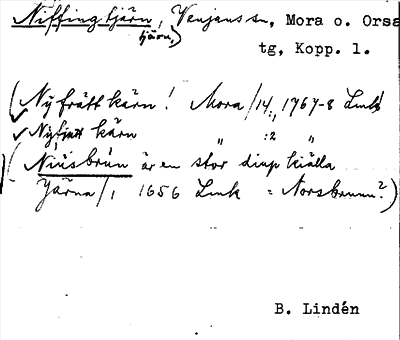 Niffingtjärn, Venjans sn, Mora o. Orsa
tjärn,)
tg, Kopp. l.
(Nÿfrått kärn! Mora/14:, 1767-8 Lmk)
Nÿfjutt kärn " :2 "
(Niüsbrün är en stor diup kiälla
Järna/1 1656 Lmk = Norsbrunn?)
B. Lindén